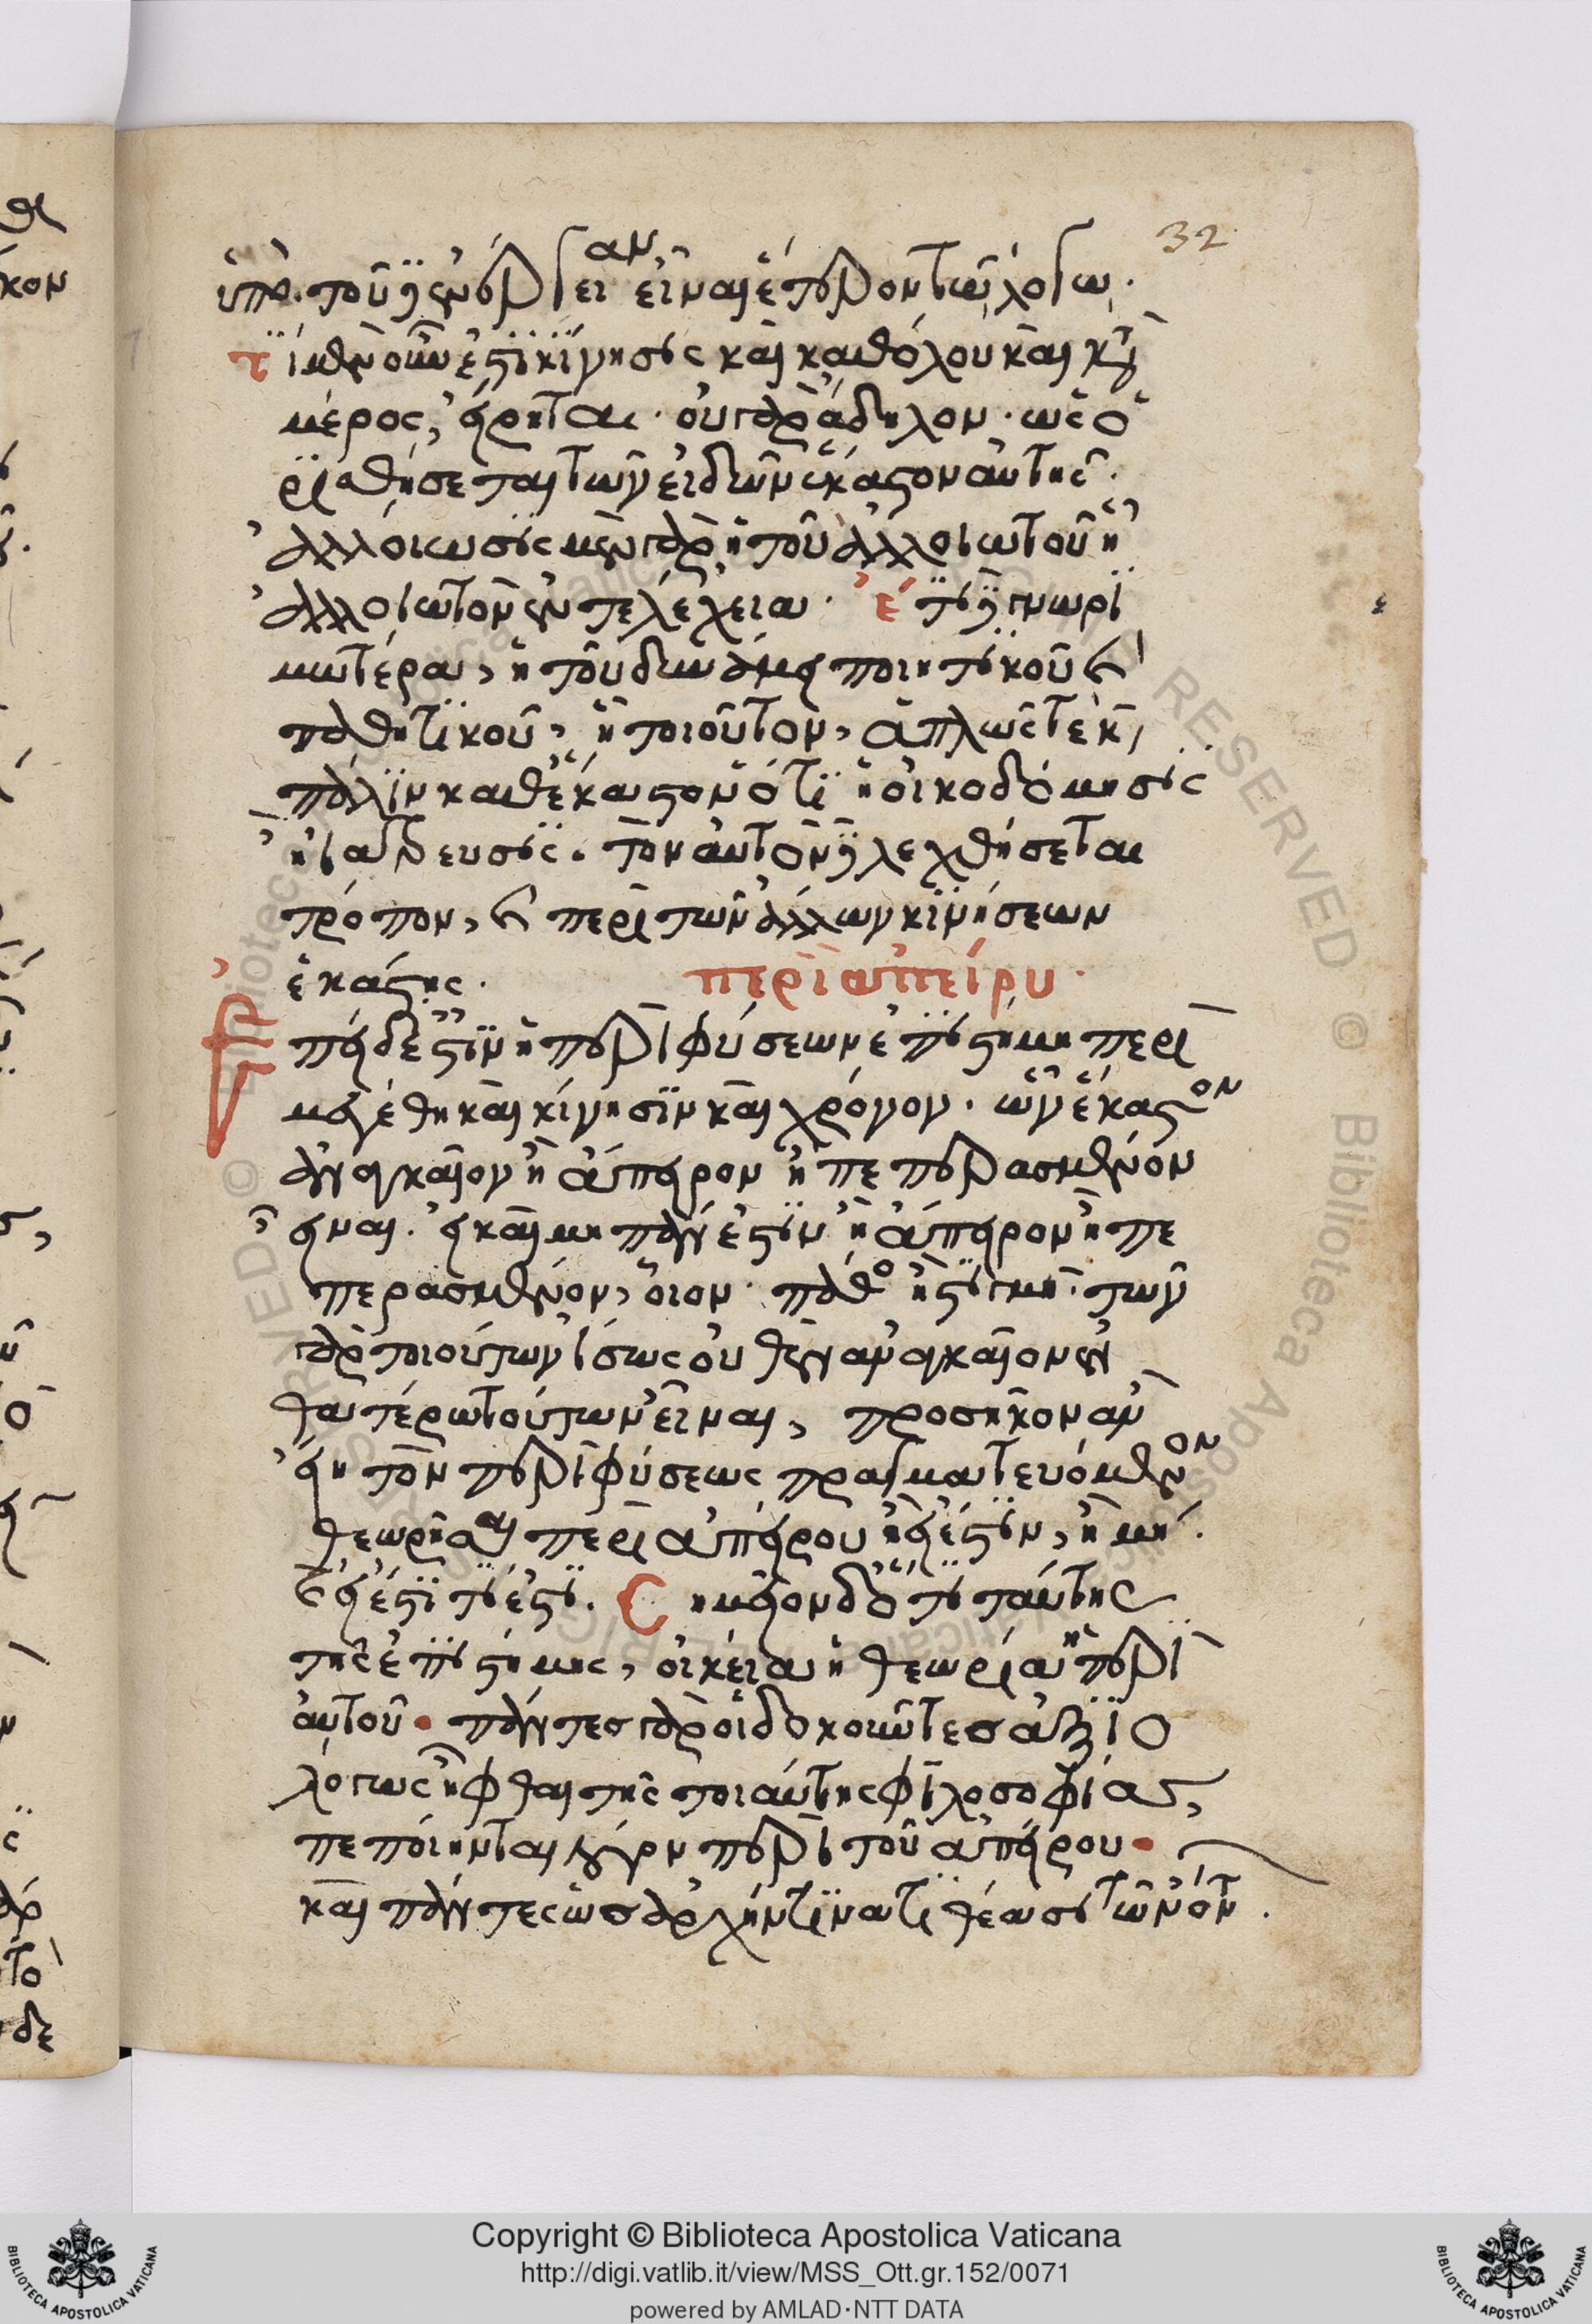 32
ὑπὸ τοῦ ἐνεργείαν εἶναι ἕτερον τῷ λόγῳ.
τί μὲν οὖν ἐστὶ κίνησις καὶ καθόλου καὶ κατὰ
μέρος, εἴρηται. οὐ γὰρ ἄδηλον. ὡς ὁ
ρισθήσεται τῶν εἰδῶν ἕκαστον αὐτῆς.
ἀλλοίωσις μὲν γὰρ ἡ τοῦ ἀλλοιωτοῦ ἢ
ἀλλοιωτὸν ἐντελέχεια. ἔτι δὲ γνωρι
μώτερα, ἡ τοῦ δυνάμει ποιητικοῦ καὶ
παθητικοῦ, ἢ τοιοῦτον, ἁπλῶς τε καὶ
πάλιν καθέκαστον ὅτι ἢ οἰκοδόμησις
ἢ ἰάτρευσις. τὸν αὐτὸν δὲ λεχθήσεται
τρόπον, καὶ περὶ τῶν ἄλλων κινήσεων
ἑκάστης. περὶ ἀπείρου.
Ἐπεὶ δέ ἐστιν ἡ περὶ φύσεων ἐπιστήμη περὶ
μεγέθη καὶ κίνησιν καὶ χρόνον. ὧν ἕκαστον
ἀναγκαῖον ἢ ἄπειρον ἢ πεπερασμένον
εἶναι. εἰ καὶ μὴ πᾶν ἐστιν ἢ ἄπειρον ἢ πε
περασμένον, οἷον πάθος ἢ στιγμή. τῶν
γὰρ τοιούτων ἴσως οὐθὲν ἀναγκαῖον ἐν
θατέρῳ τούτων εἶναι, προσῆκον ἂν
εἴη τὸν περὶ φύσεως πραγματευόμενον
θεωρῆσαι περὶ ἀπείρου ἢ εἰ ἔστιν, ἢ μή.
καὶ εἰ ἔστι τί ἐστι. Σημεῖον δ' ὅτι ταύτης
τῆς ἐπιστήμης, οἰκεία ἡ θεωρία ἡ περὶ
αὐτοῦ. πάντες γὰρ οἱ δοκοῦντες ἀξιο
λόγως ἧφθαι τῆς τοιαύτης φιλοσοφίας,
πεποίηνται λόγον περὶ τοῦ ἀπείρου.
καὶ πάντες ὡς ἀρχήν τινα τιθέασι τῶν ὄντ.
Copyright © Biblioteca Apostolica Vaticana
http://digi.vatlib.it/view/MSS_Ott.gr.152/0071
powered by AMLAD·NTT DATA